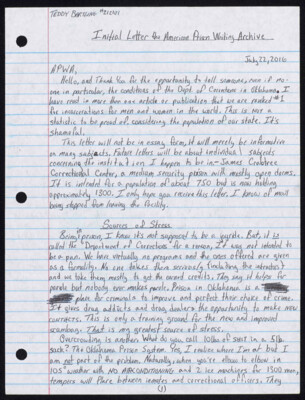 TEDDY
Initial Letter the American Prison Writing Archive
July, 22, 2016
APWA,
Hello, and Thank You for the opportunity to tell someone, even if no-
one in particular, the conditions of the Dept. of Corrections in Oklahoma. I
have read in more than one article or publication that we are ranked #1
for incarcerations for men and women in the world. This is not a
statistic to be proud of, considering the population of our state. It's
shameful.
This letter will not be in essay form, it will merely be information
on many subjects. Future letters will be about individual subjects
concerning the institution I happen to be in- James Crabtree
Correctional Center, a medium security prison with mostly open dorms.
It is intended for a population of about 750 but is now holding
approximately 1300. I only hope you receive this letter. I know of mail
being stopped from leaving the facility.
Sources of Stress
Being prison, I know its not supposed to be a joyride. But, it is
called the "Department of Corrections" for a reason. It was not intended to
be a pun. We have virtually no programs and the ones offered are given
as a formality. No one takes them seriously (including the teachers)
and we take them mostly to get the award credits. They may help
parole but nobody ever makes parole. Prison in Oklahoma is a
place for criminals to improve and perfect their choice of crime.
It gives drug addicts and drug dealers the opportunity to make new
contacts. This is only a training ground for the new and improved
scumbag. That is my greatest source of stress.
Overcrowding is another. What do you call 10lbs of shit in a 5lb
sack? The Oklahoma Prison System. Yes, I realize where I'm at but I
am not part of the problem. Naturally, when you're elbow to elbow in
105° weather with NO AIR CONDITIONING and 2 ice machines for 1300 men,
tempers will flare between inmates and correctional officers. They
(1)